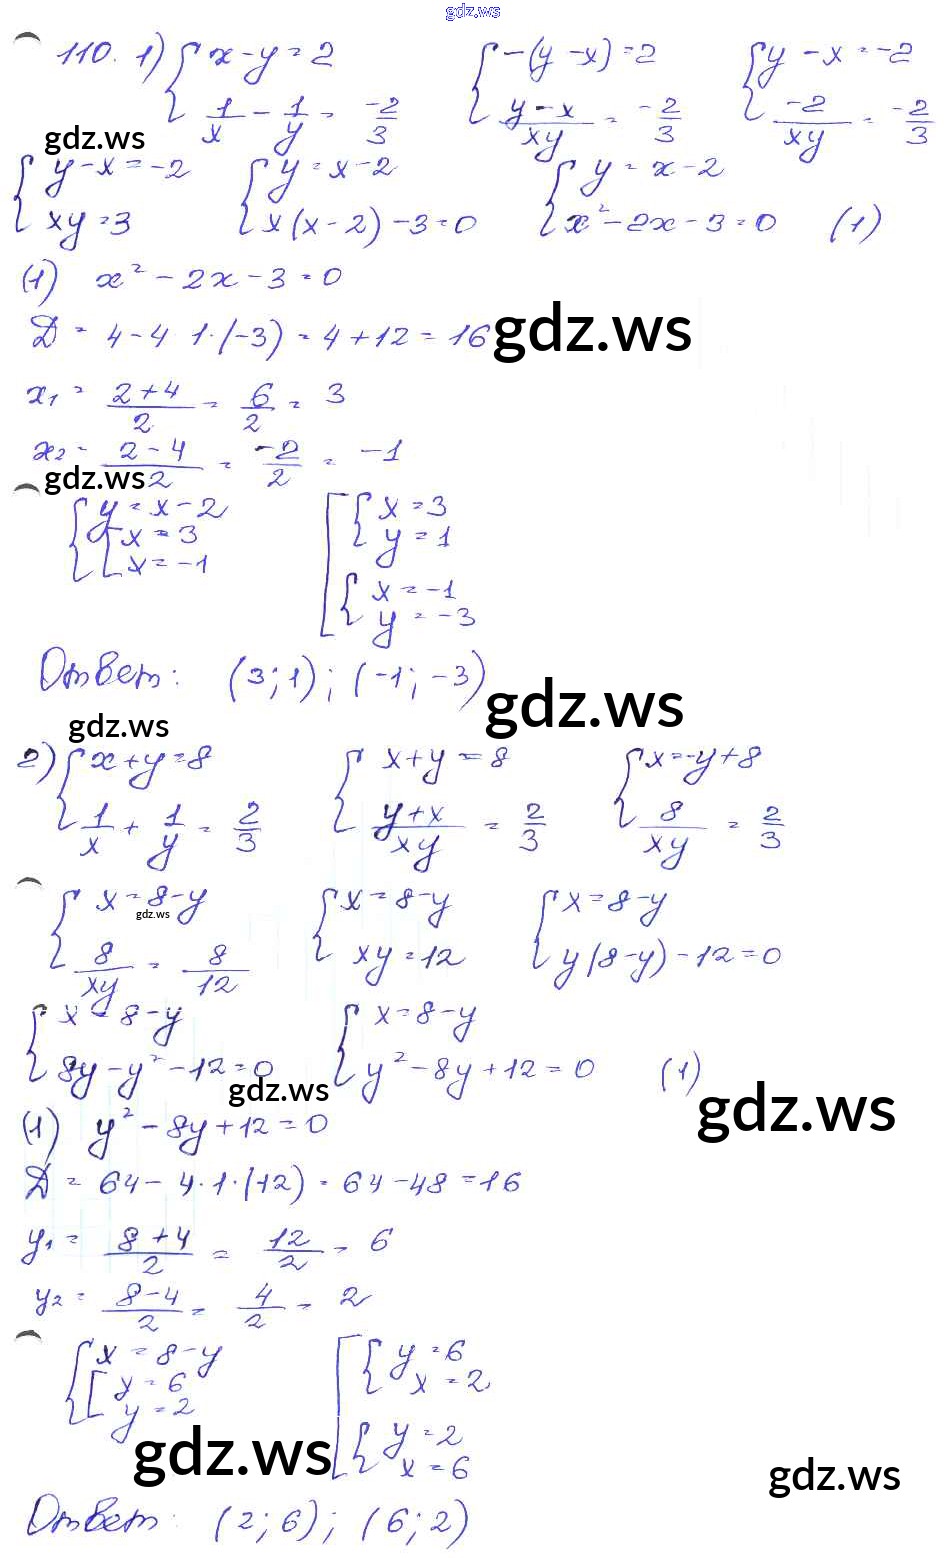 gdz.ws
110. 1) { x - y = 2 { -(y - x) = 2 { y - x = -2
1/x - 1/y = -2/3 (y - x)/xy = -2/3 -2/xy = -2/3
gdz.ws
{ y - x = -2 { y = x - 2 { y = x - 2
xy = 3 x(x - 2) - 3 = 0 x² - 2x - 3 = 0 (1)
(1) x² - 2x - 3 = 0
Д = 4 - 4 · 1 · (-3) = 4 + 12 = 16 gdz.ws
x₁ = (2 + 4)/2 = 6/2 = 3
x₂ = (2 - 4)/2 = -2/2 = -1
gdz.ws
{ y = x - 2 [ { x = 3
[ x = 3 y = 1
x = -1 { x = -1
y = -3
Ответ: (3; 1); (-1; -3)
gdz.ws
gdz.ws
2) { x + y = 8 { x + y = 8 { x = -y + 8
1/x + 1/y = 2/3 (y + x)/xy = 2/3 8/xy = 2/3
{ x = 8 - y { x = 8 - y { x = 8 - y
gdz.ws
8/xy = 8/12 xy = 12 y(8 - y) - 12 = 0
{ x = 8 - y { x = 8 - y
8y - y² - 12 = 0 y² - 8y + 12 = 0 (1)
gdz.ws
gdz.ws
(1) y² - 8y + 12 = 0
Д = 64 - 4 · 1 · (+12) = 64 - 48 = 16
y₁ = (8 + 4)/2 = 12/2 = 6
y₂ = (8 - 4)/2 = 4/2 = 2
{ x = 8 - y [ { y = 6
[ y = 6 x = 2
y = 2 { y = 2
x = 6
gdz.ws
gdz.ws
Ответ: (2; 6); (6; 2)